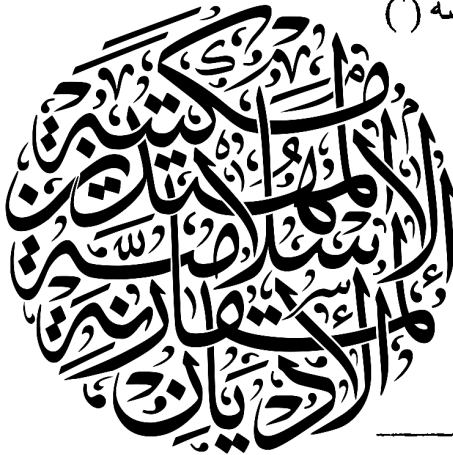 مكتبة
المهتدين
الإسلامية
لمقارنة
الأديان